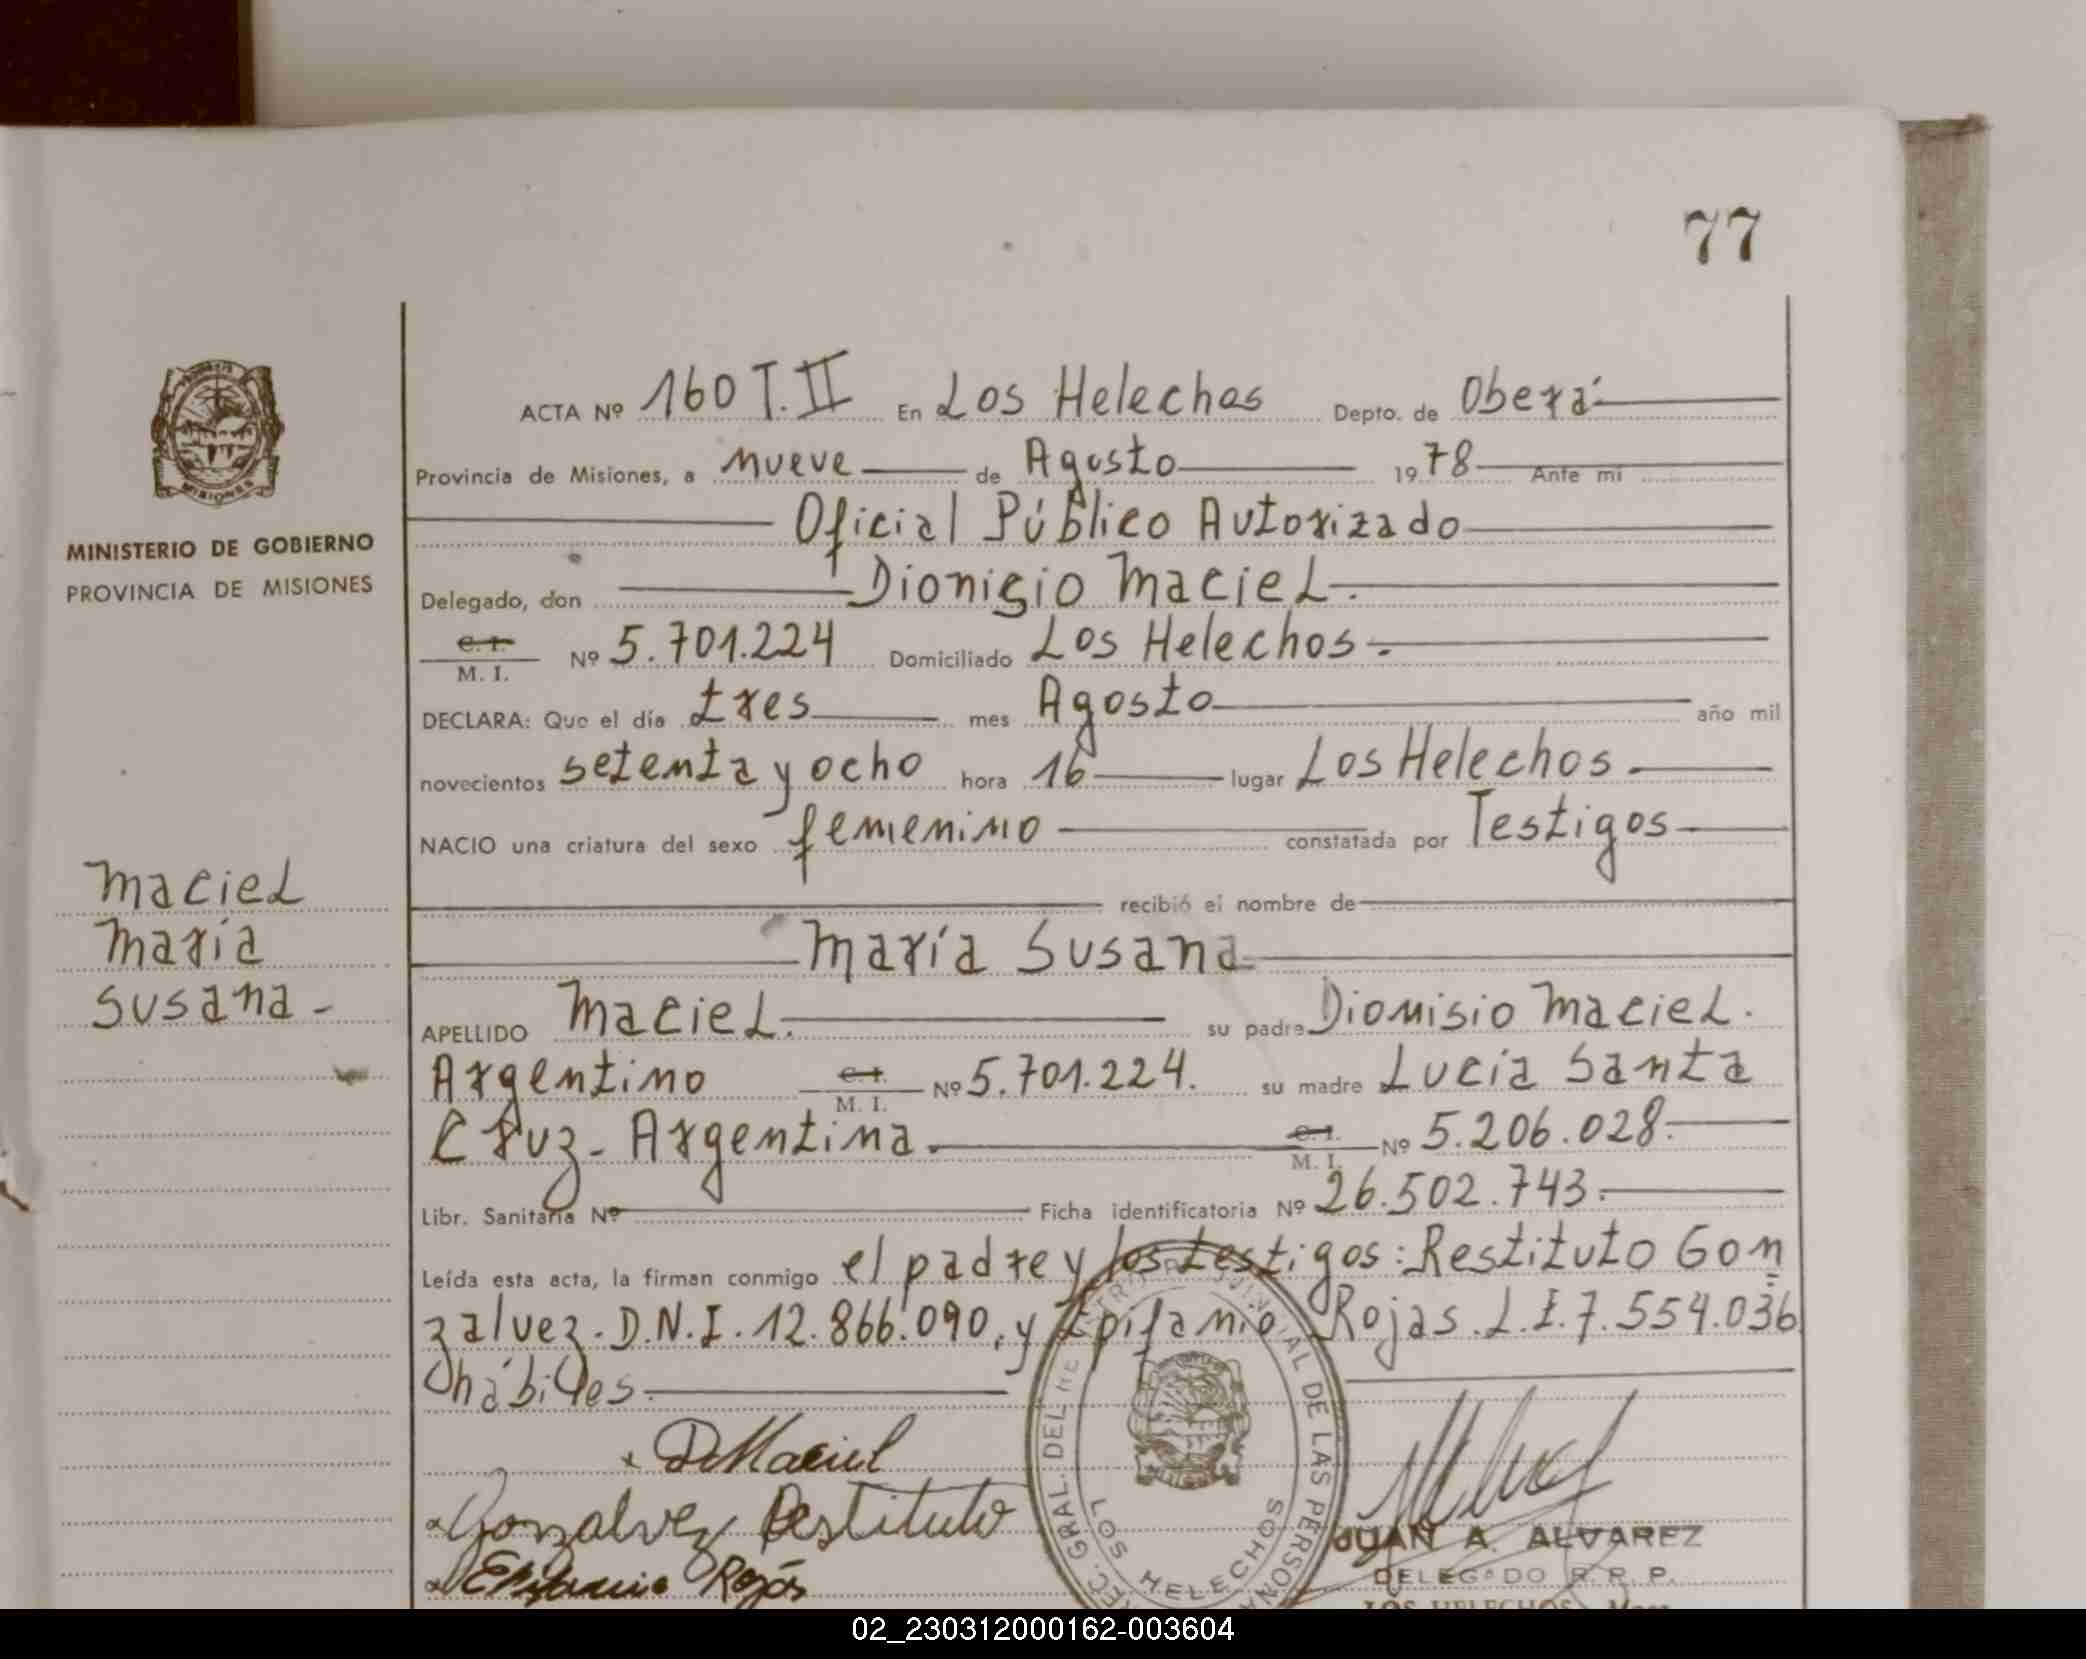 77
MISIONES
MINISTERIO DE GOBIERNO
PROVINCIA DE MISIONES
Maciel
María
Susana -
ACTA Nº 160 T. II En Los Helechos Depto. de Oberá
Provincia de Misiones, a nueve de Agosto 1978 Ante mi
Oficial Público Autorizado
Delegado, don Dionisio Maciel.
C. I.
M. I. Nº 5.701.224 Domiciliado Los Helechos.
DECLARA: Que el día tres mes Agosto año mil
novecientos setenta y ocho hora 16 lugar Los Helechos.
NACIO una criatura del sexo femenino constatada por Testigos
recibió el nombre de
María Susana
APELLIDO Maciel. su padre Dionisio Maciel.
Argentino C. I. M. I. Nº 5.701.224. su madre Lucía Santa
Cruz - Argentina. C. I. M. I. Nº 5.206.028.
Libr. Sanitaria Nº Ficha identificatoria Nº 26.502.743.
Leída esta acta, la firman conmigo el padre y los testigos: Restituto Gon=
zalvez. D.N.I. 12.866.090. y Epifanio Rojas. L.E. 7.554.036
hábiles.
x D Maciel
Gonzalvez Restituto
Epifanio Rojas
GRAL. DEL DE LAS PERSONA
LOS HELECHOS
JUAN A. ALVAREZ
DELEGADO R. P. P.
LOS HELECHOS
02_230312000162-003604